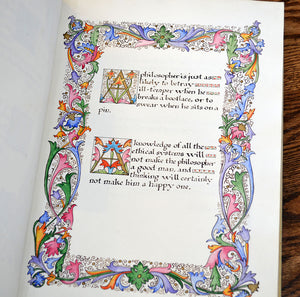 A philosopher is just as
likely to betray
ill-temper when he
breaks a bootlace, or to
swear when he sits on a
pin.
A knowledge of all the
ethical systems will
not make the philosopher
a good man, and
thinking will certainly
not make him a happy one.